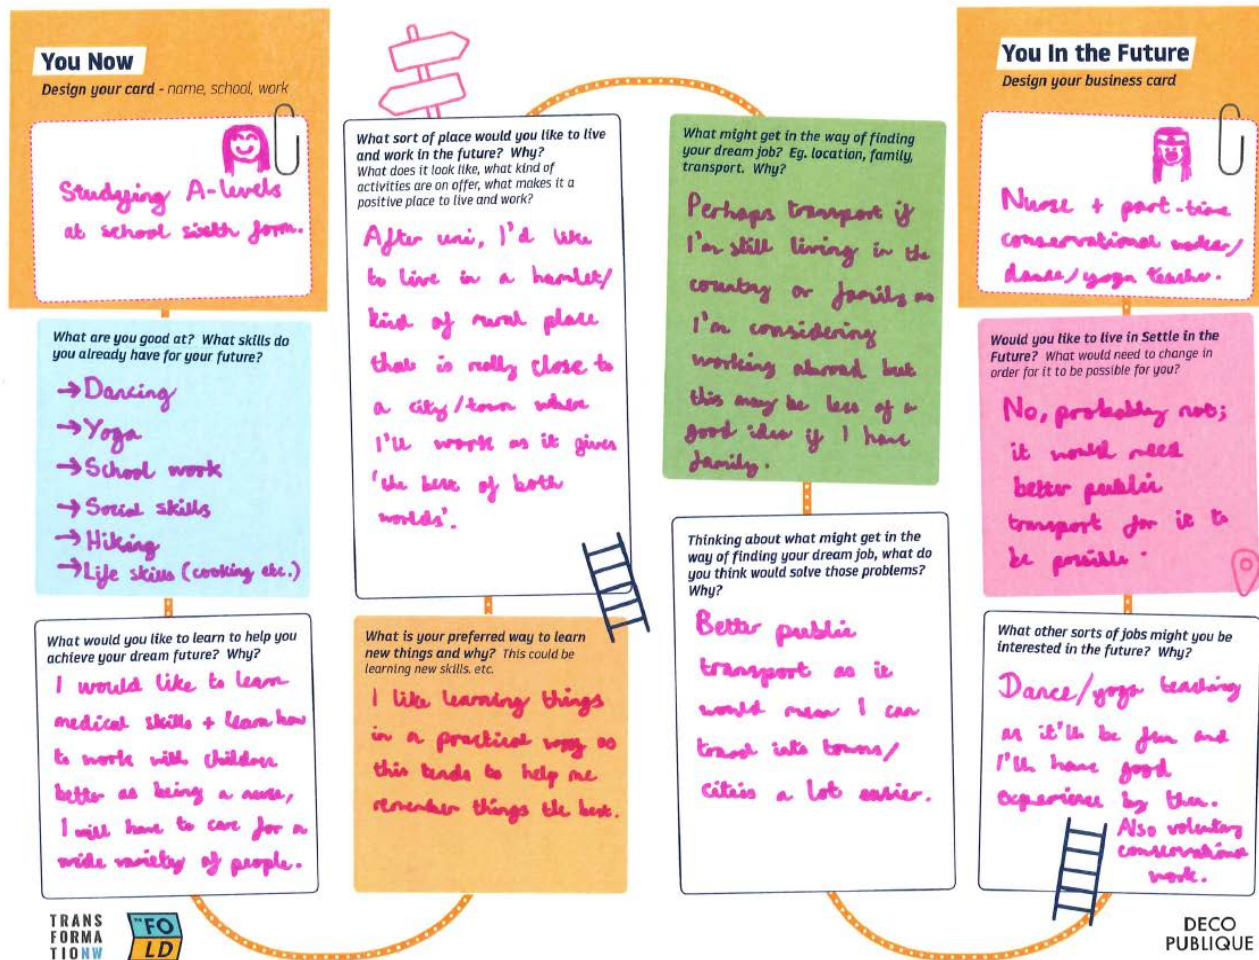 You Now
Design your card - name, school, work
Studying A-levels
at school sixth form.
What are you good at? What skills do
you already have for your future?
→ Dancing
→ Yoga
→ School work
→ Social skills
→ Hiking
→ Life skills (cooking etc.)
What would you like to learn to help you
achieve your dream future? Why?
I would like to learn
medical skills + learn how
to work with children
better as being a nurse,
I will have to care for a
wide variety of people.
What sort of place would you like to live
and work in the future? Why?
What does it look like, what kind of
activities are on offer, what makes it a
positive place to live and work?
After uni, I'd like
to live in a hamlet/
kind of rural place
that is really close to
a city/town where
I'll work as it gives
'the best of both
worlds'.
What is your preferred way to learn
new things and why? This could be
learning new skills. etc.
I like learning things
in a practical way as
this tends to help me
remember things the best.
What might get in the way of finding
your dream job? Eg. location, family,
transport. Why?
Perhaps transport if
I'm still living in the
country or family as
I'm considering
working abroad but
this may be less of a
good idea if I have
family.
Thinking about what might get in the
way of finding your dream job, what do
you think would solve those problems?
Why?
Better public
transport as it
would mean I can
travel into towns/
cities a lot easier.
You In the Future
Design your business card
Nurse + part-time
conservational worker/
dance/yoga teacher.
Would you like to live in Settle in the
Future? What would need to change in
order for it to be possible for you?
No, probably not;
it would need
better public
transport for it to
be possible.
What other sorts of jobs might you be
interested in the future? Why?
Dance/yoga teaching
as it'll be fun and
I'll have good
experience by then.
Also voluntary
conservational
work.
TRANS
FORMA
TIONW
THE FO
LD
DECO
PUBLIQUE